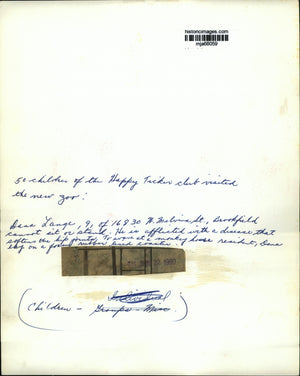 historicimages.com
mja66059
50 children of the Happy Ticker club visited
the new zoo.
Dana Lange, 9, of 16830 W. Melvina St., Brookfield
cannot sit or stand. He is afflicted with a disease that
softens the hip joints. To monkey house resident, Dana
on a
1980
Individual
Children - Groups - Misc